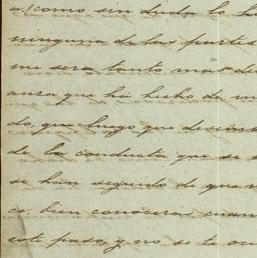 a, (como sin duda lo ha
ninguna de las partes
me sera tanto mas de
anza que ha hecho de m
do, que luego que desemb
de la conducta que se
se han seguido de que
ce bien conocerá cuan
este paso, y no se le ocu